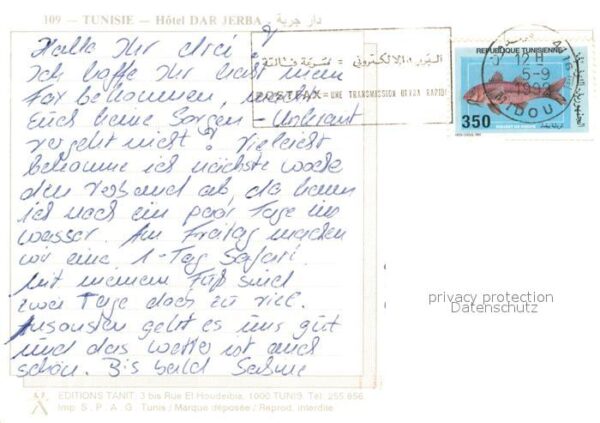 109 — TUNISIE — Hôtel DAR JERBA — دار جربة
Hallo Ihr drei!
Ich hoffe Ihr habt mein
Fax bekommen, macht
Euch keine Sorgen - Unkraut
vergeht nicht! Vielleicht
bekomme ich nächste Woche
den Verband ab, da kann
ich noch ein paar Tage ins
Wasser. Am Freitag machen
wir eine 1-Tag Safari.
Mit meinem Fuß sind
zwei Tage doch zu viel.
Ansonsten geht es uns gut
und das Wetter ist auch
schön. Bis bald Sabine
البريد الإلكتروني =
POSTFAX = UNE TRANSMISSION RAPIDE
12 H
5-9
MIDOU
REPUBLIQUE TUNISIENNE
350
privacy protection
Datenschutz
EDITIONS TANIT: 3 bis Rue El Houdeibia, 1000 TUNIS. Tél: 255.856
Imp. S.P.A.G. Tunis / Marque déposée / Reprod. interdite